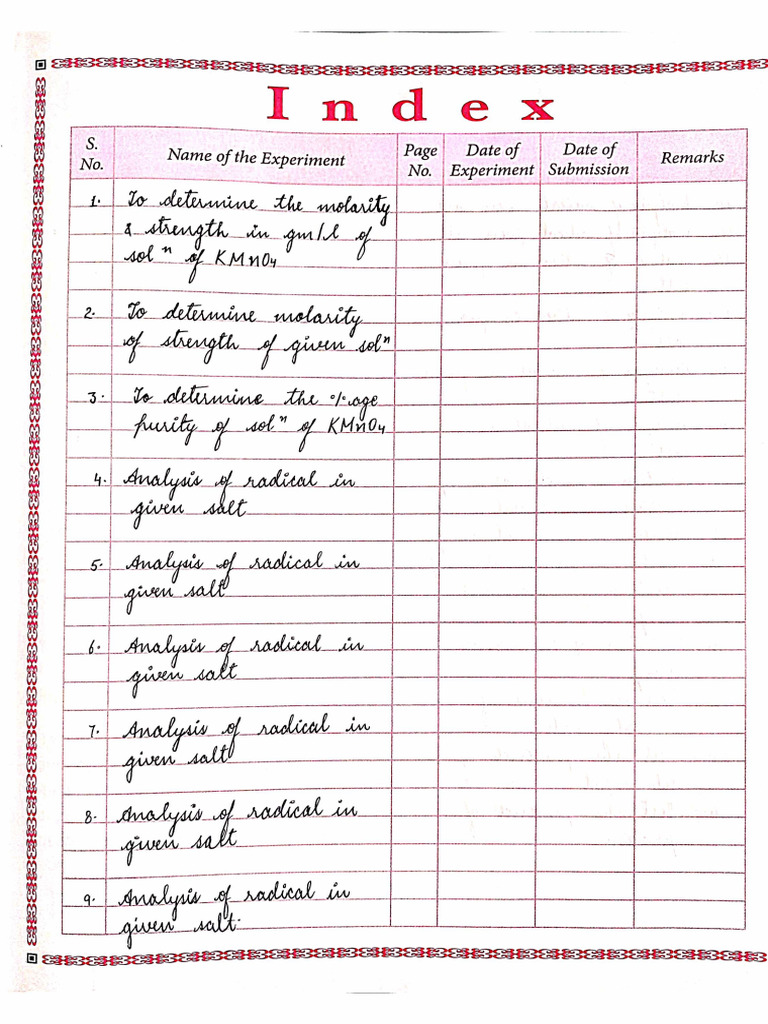 Index
S. No. Name of the Experiment Page No. Date of Experiment Date of Submission Remarks
1. To determine the molarity
& strength in gm/l of
solⁿ of KMnO₄
2. To determine molarity
of strength of given solⁿ
3. To determine the %age
purity of solⁿ of KMnO₄
4. Analysis of radical in
given salt
5. Analysis of radical in
given salt
6. Analysis of radical in
given salt
7. Analysis of radical in
given salt
8. Analysis of radical in
given salt
9. Analysis of radical in
given salt.